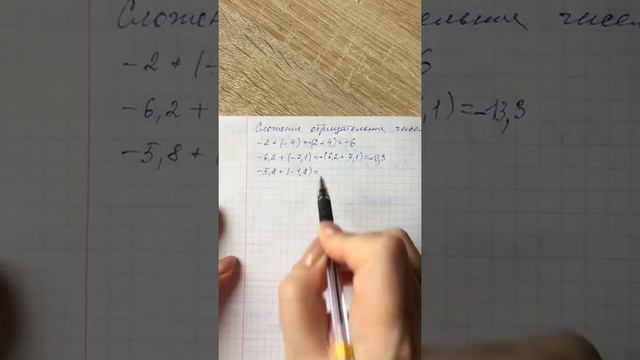 Сложение отрицательных чисел
-2 + (-4) = -(2+4) = -6
-6,2 + (-7,1) = -(6,2 + 7,1) = -13,3
-5,8 + (-1,8) =